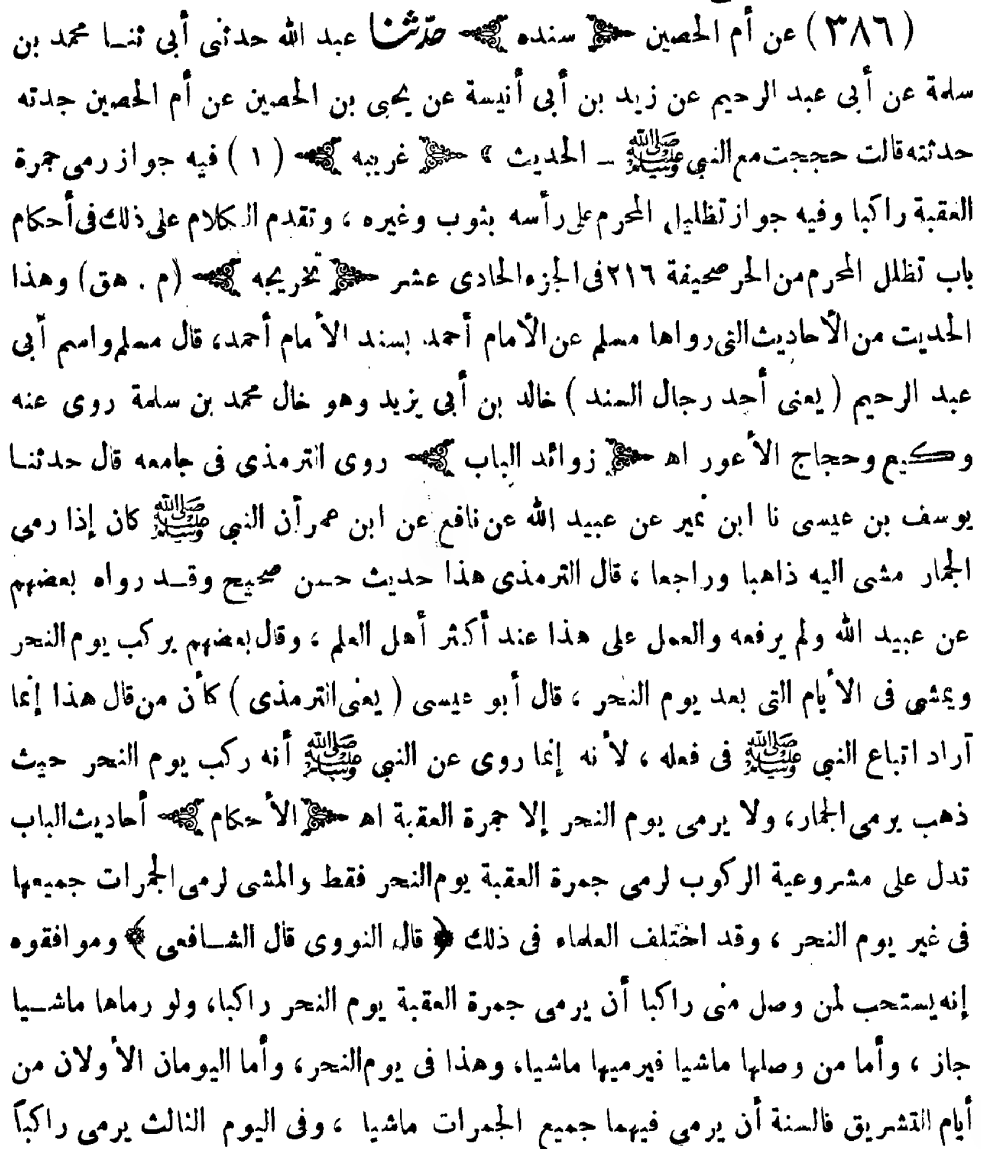 (٣٨٦) عن أم الحصين ﴿ سنده ﴾ حدّثنا عبد الله حدثنى أبى ثنا محمد بن
سلمة عن أبى عبد الرحيم عن زيد بن أبى أنيسة عن يحيى بن الحصين عن أم الحصين جدته
حدثته قالت حججت مع النبى ﷺ ــ الحديث » ﴿ غريبه ﴾ (١) فيه جواز رمى جمرة
العقبة راكبا وفيه جواز تظليل المحرم على رأسه بثوب وغيره ، وتقدم الكلام على ذلك فى أحكام
باب تظلل المحرم من الحر صحيفة ٢١٦ فى الجزء الحادى عشر ﴿ تخريجه ﴾ (م . هق) وهذا
الحديت من الأحاديث التى رواها مسلم عن الأمام أحمد بسند الأمام أحمد، قال مسلم واسم أبى
عبد الرحيم ( يعنى أحد رجال السند ) خالد بن أبى يزيد وهو خال محمد بن سلمة روى عنه
وكيع وحجاج الأعور اهـ ﴿ زوائد الباب ﴾ روى الترمذى فى جامعه قال حدثنا
يوسف بن عيسى نا ابن نمير عن عبيد الله عن نافع عن ابن عمر أن النبي ﷺ كان إذا رمى
الجمار مشى اليه ذاهبا وراجعا ، قال الترمذى هذا حديث حسن صحيح وقد رواه بعضهم
عن عبيد الله ولم يرفعه والعمل على هذا عند أكثر أهل العلم ، وقال بعضهم يركب يوم النحر
ويمشى فى الأيام التى بعد يوم النحر ، قال أبو عيسى ( يعنى الترمذى ) كأن من قال هذا إنما
آراد اتباع النبى ﷺ فى فعله ، لأنه إنما روى عن النبى ﷺ أنه ركب يوم النحر حيث
ذهب يرمى الجمار، ولا يرمى يوم النحر إلا جمرة العقبة اهـ ﴿ الأحكام ﴾ أحاديث الباب
تدل على مشروعية الركوب لرمى جمرة العقبة يوم النحر فقط والمشى لرمى الجمرات جميعها
فى غير يوم النحر ، وقد اختلف العلماء فى ذلك ﴿ قال النووى قال الشافعى ﴾ وموافقوه
إنه يستحب لمن وصل منى راكبا أن يرمى جمرة العقبة يوم النحر راكبا، ولو رماها ماشيا
جاز ، وأما من وصلها ماشيا فيرميها ماشيا، وهذا فى يوم النحر، وأما اليومان الأولان من
أيام التشريق فالسنة أن يرمى فيهما جميع الجمرات ماشيا ، وفى اليوم الثالث يرمى راكباً